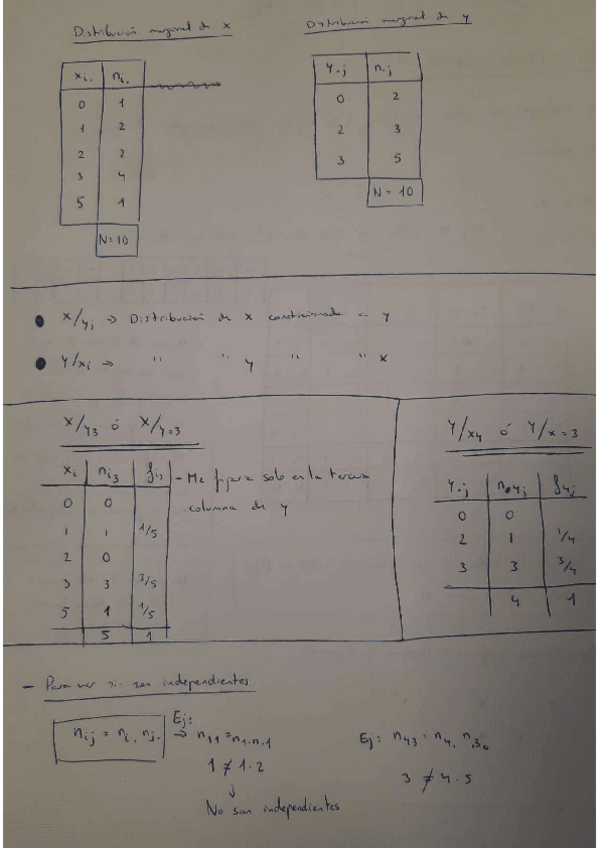 Distribución marginal de x
xi. ni.
0 1
1 2
2 2
3 4
5 1
N=10
Distribución marginal de y
y.j n.j
0 2
2 3
3 5
N = 10
x/yj → Distribución de x condicionada a y
y/xi → " " y " " x
x/y3 ó x/y=3
xi ni3 fi3
0 0
1 1 1/5
2 0
3 3 3/5
5 1 1/5
5 1
- Me fijara solo en la tercera
columna de y
y/x4 ó y/x=3
y.j n4j f4j
0 0
2 1 1/4
3 3 3/4
4 1
- Para ver si son independientes
nij = ni. nj.
Ej:
→ n11 = n1. n.1
1 ≠ 1·2
↓
No son independientes
Ej: n43 = n4. n.3
3 ≠ 4·5